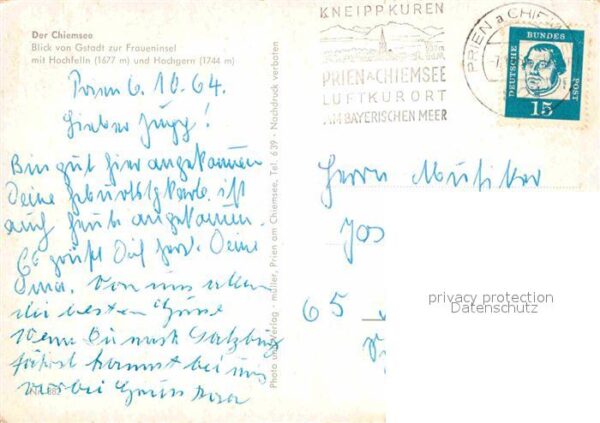 Der Chiemsee
Blick von Gstadt zur Fraueninsel
mit Hochfelln (1677 m) und Hochgern (1744 m)
Prien 6.10.64.
Lieber
Bin gut hier angekommen
Deine Geburtstgkarte ist
auch heute angekommen.
Es grüßt Dich herzl. Deine
Oma. Von uns allen
die besten Grüße
Wenn Du nach Salzburg
fährst kommst bei uns
vorbei Gruss
Photo und Verlag - müller, Prien am Chiemsee, Tel. 639 · Nachdruck verboten
KNEIPPKUREN
PRIEN A. CHIEMSEE
LUFTKURORT
AM BAYERISCHEN MEER
PRIEN a CHIEM
DEUTSCHE BUNDES POST
15
Herrn Musiker
Jos
65
privacy protection
Datenschutz